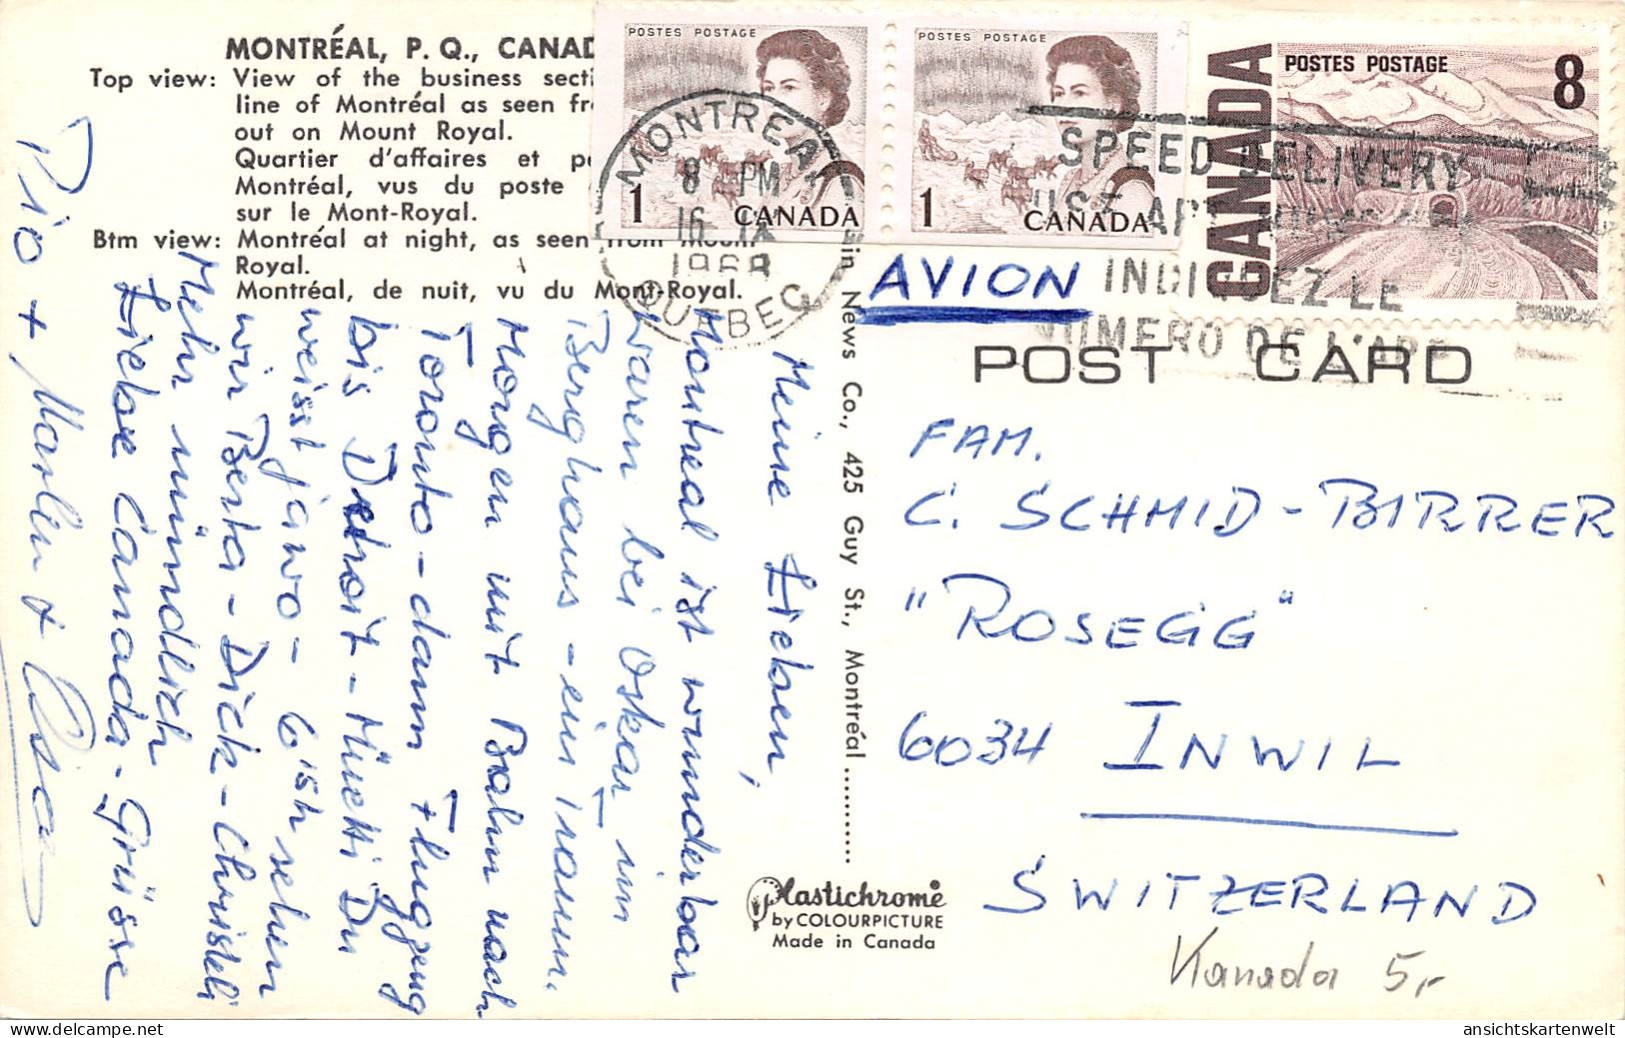 MONTRÉAL, P. Q., CANAD
Top view: View of the business secti
line of Montréal as seen fr
out on Mount Royal.
Quartier d'affaires et p
Montréal, vus du poste
sur le Mont-Royal.
Btm view: Montréal at night, as seen from Mount
Royal.
Montréal, de nuit, vu du Mont-Royal.
POSTES POSTAGE
1 CANADA
POSTES POSTAGE
1 CANADA
CANADA
POSTES POSTAGE 8
MONTREAL
8 PM
16 IX
1968
QUEBEC
SPEED DELIVERY
USE
INDIQUEZ LE
NUMERO DE L'APP
AVION
POST CARD
FAM.
C. SCHMID-BIRRER
"ROSEGG"
6034 INWIL
SWITZERLAND
Kanada 5,-
News Co., 425 Guy St., Montréal
Plastichrome
by COLOURPICTURE
Made in Canada
Meine Lieben,
Montreal ist wunderbar
waren bei Oskar im
Berghaus - ein Traum.
Morgen mit Bahn nach
Toronto - dann Flugzeug
bis Detroit - Müetti Du
weisst ja wo - sehen
wir Berta - Dick - Christeli
Mehr mündlich
Liebe Canada-Grüsse
Pio +
ansichtskartenwelt